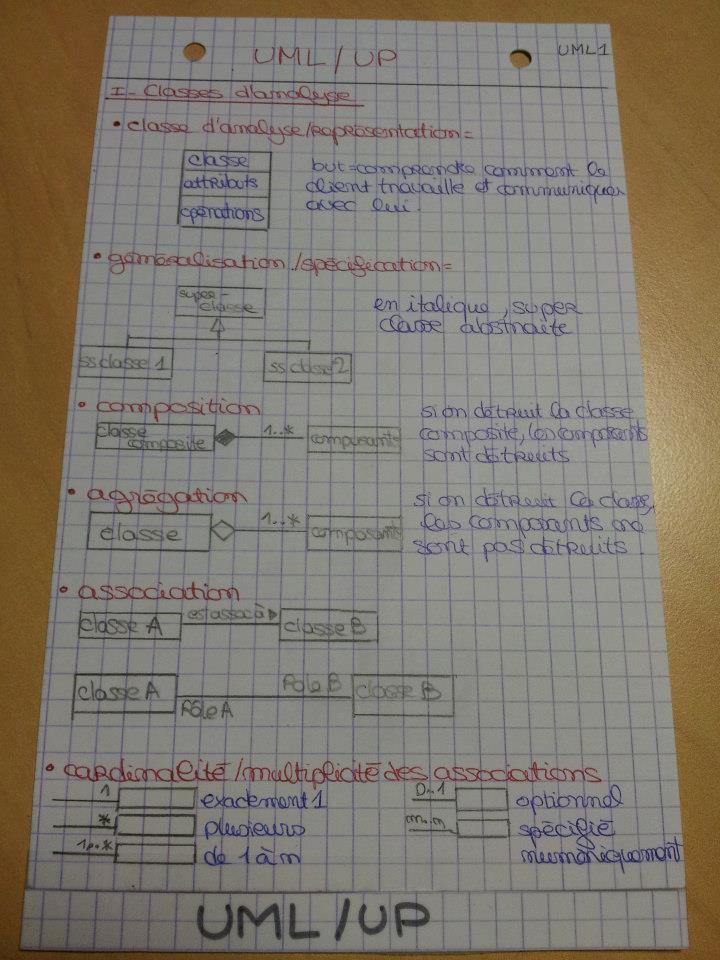 UML/UP
UML1
I- Classes d'analyse
• classe d'analyse/représentation=
classe
attributs
opérations
but=comprendre comment le
client travaille et communiquer
avec lui.
• généralisation/spécification=
super-
classe
ss classe 1
ss classe 2
en italique, super
classe abstraite
• composition
classe
composite
1..*
composants
si on détruit la classe
composite, les composants
sont détruits
• agrégation
classe
1..*
composants
si on détruit la classe,
les composants ne
sont pas détruits.
• association
classe A
est associé à
classe B
classe A
Rôle B
Rôle A
classe B
• cardinalité/multiplicité des associations
1
exactement 1
*
plusieurs
1..*
de 1 à n
0..1
optionnel
m..n
spécifié
numériquement
UML/UP